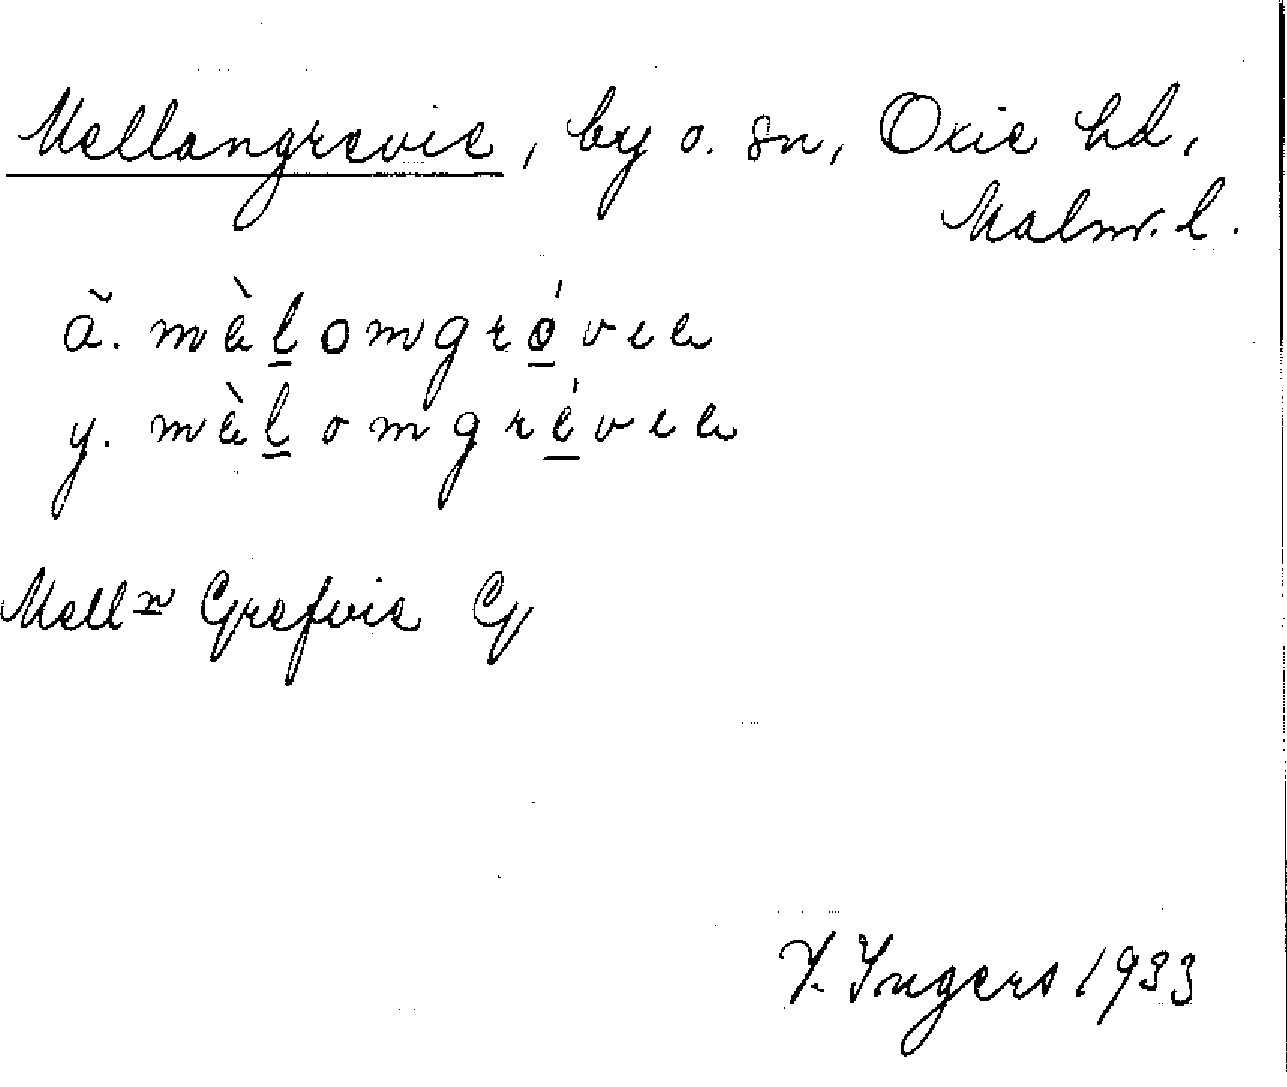 Mellangrevie, by o. sn, Oxie hd,
Malm. l.
ä. mæ̀l̲omgró̲viæ
y. mæ̀l̲omgré̲viæ
Mell<sup>n</sup> Grefvie G
I. Ingers 1933